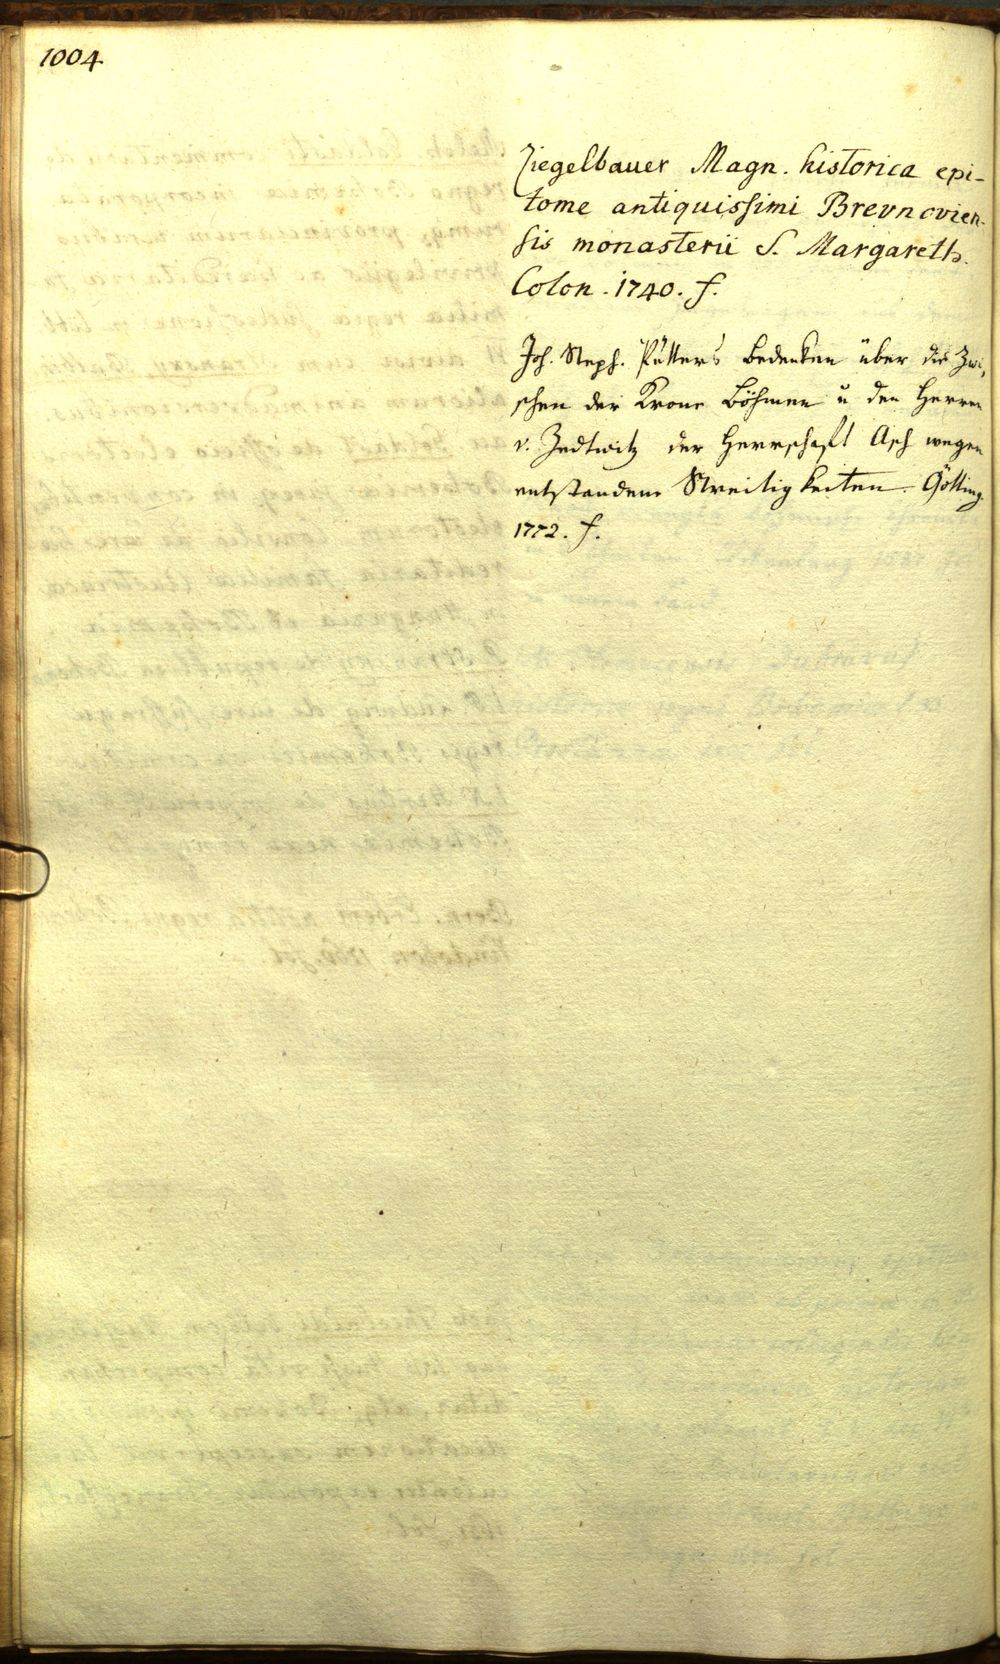 1004
Ziegelbauer Magn. historica epi-
tome antiquissimi Brevnovien-
sis monasterii S. Margareth.
Colon. 1740. f.
Joh. Steph. Pütters Bedenken über die Zwi,
schen der Krone Böhmen u den Herren
v. Zedtwitz der Herrschaft Asch wegen
entstandene Streitigkeiten. Götting.
1772. f.